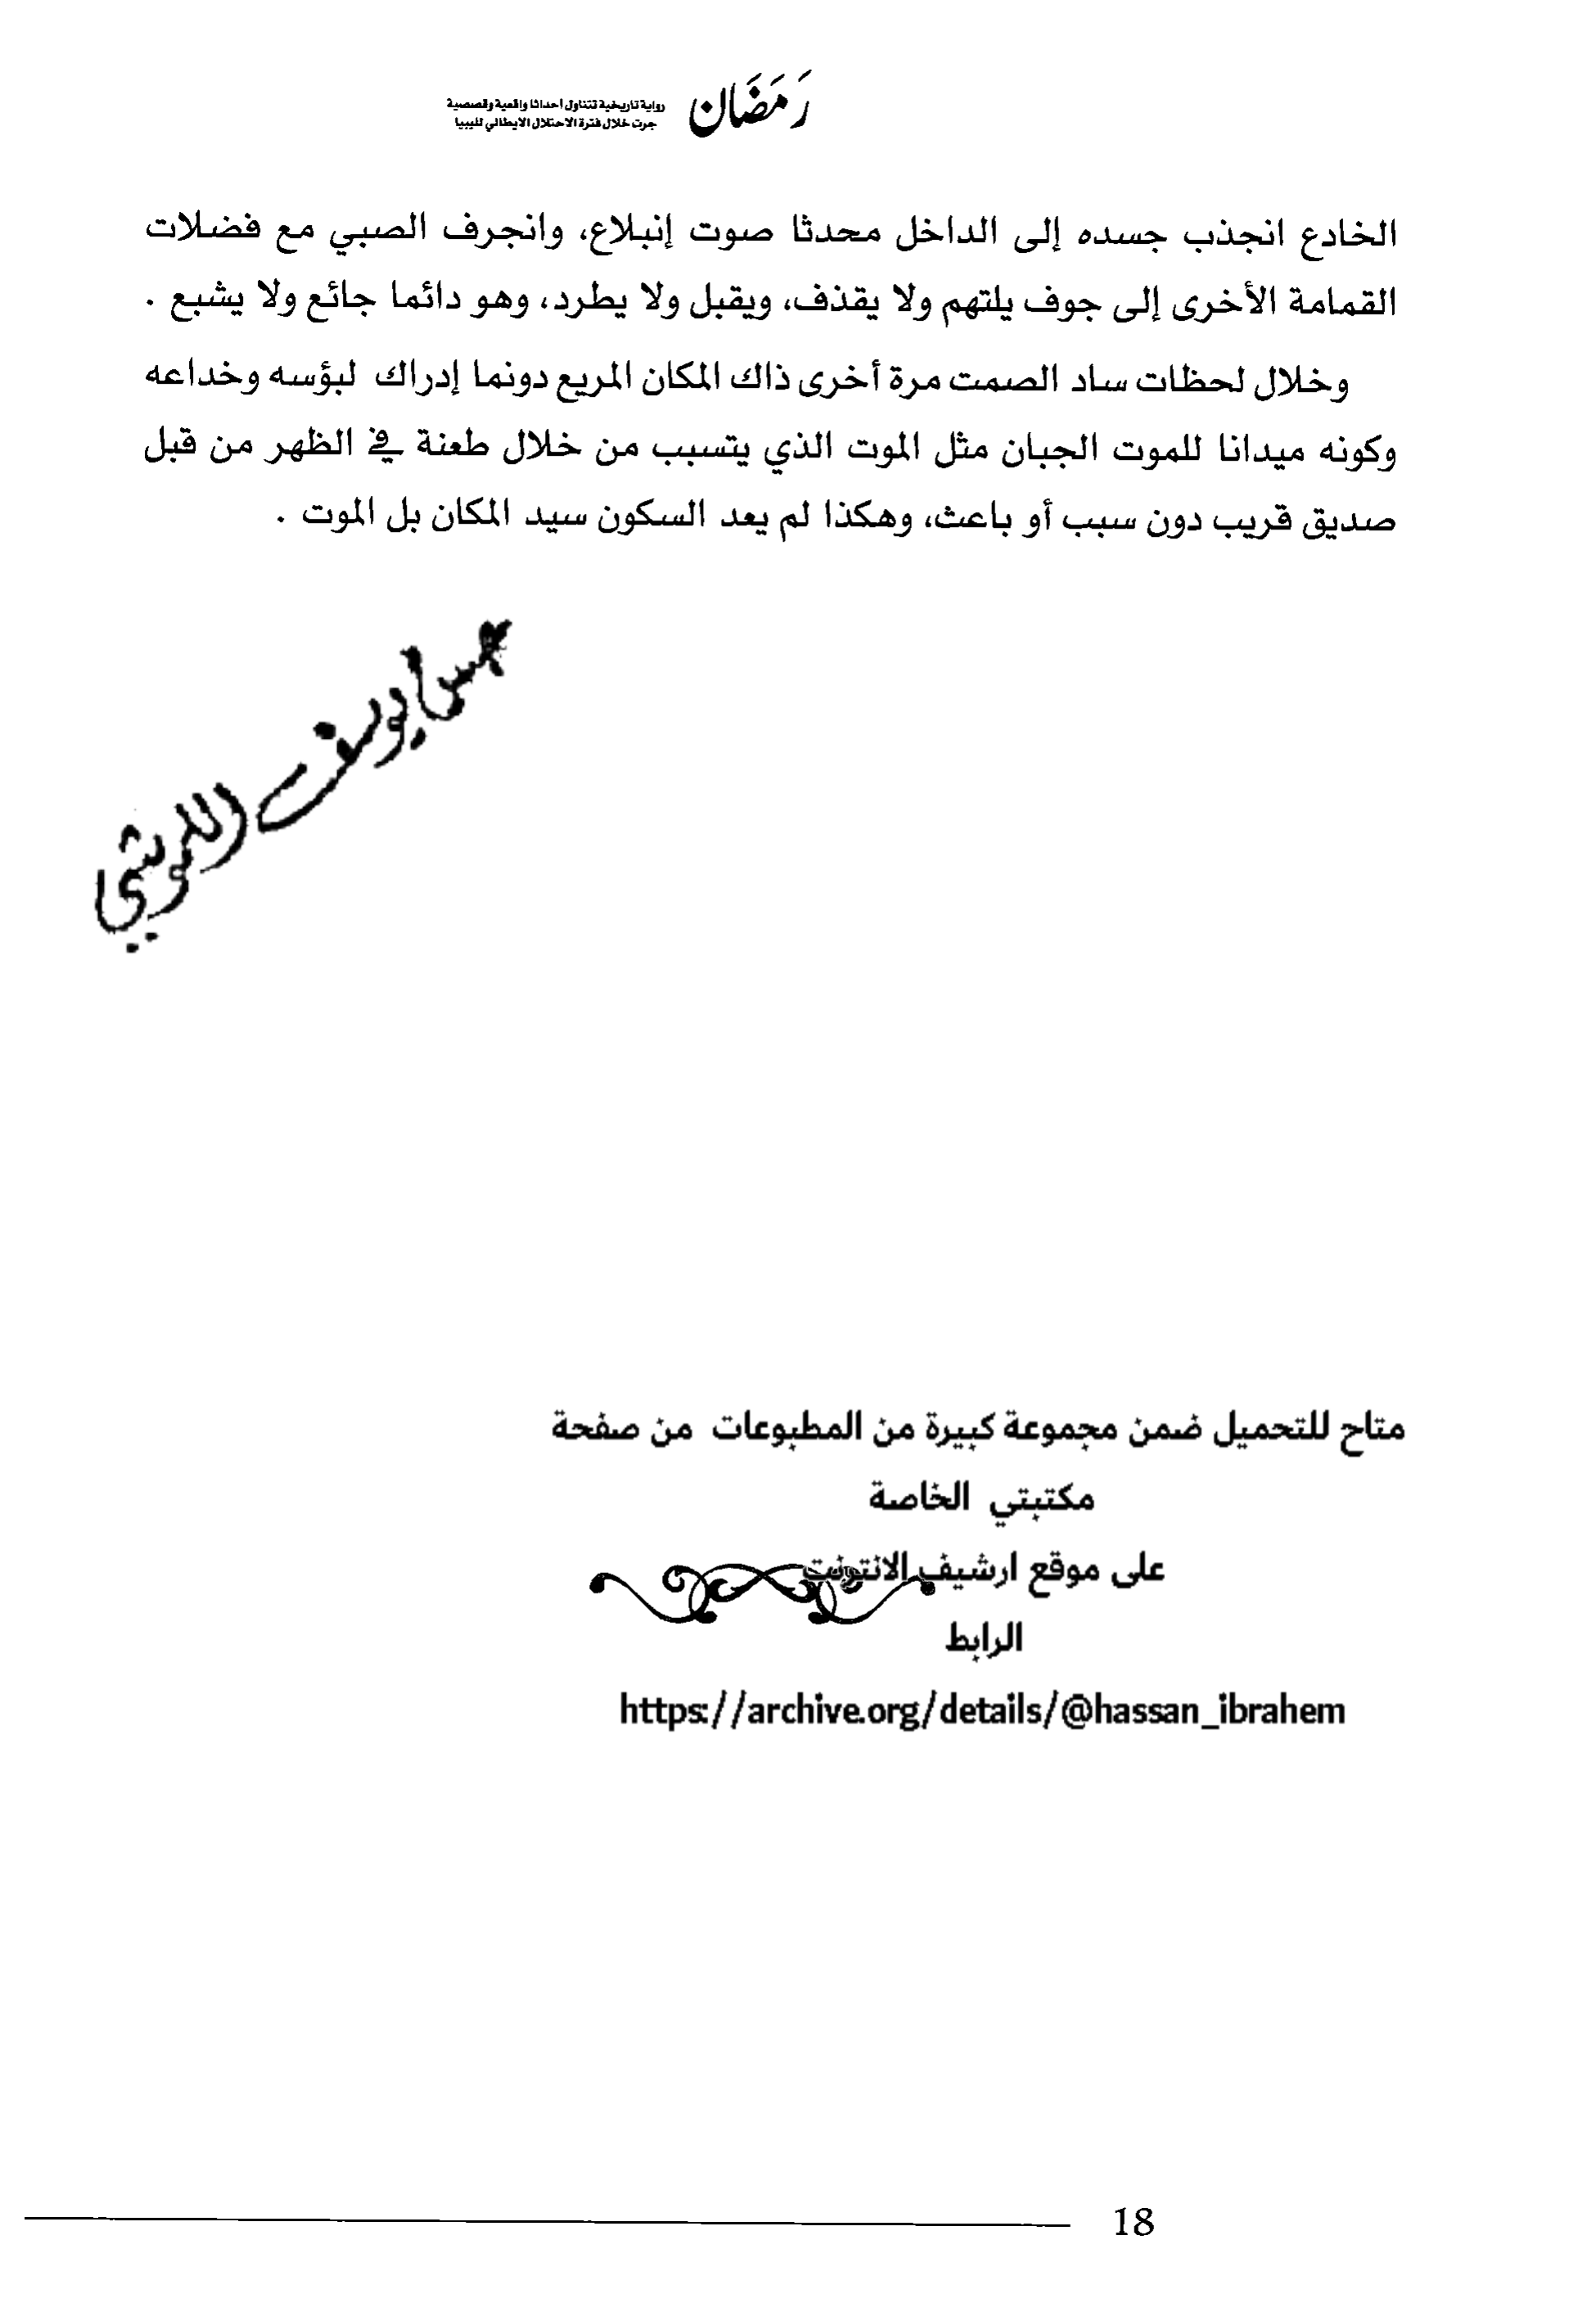 رَمَضَان
رواية تاريخية تتناول احداثا واقعية وقصصية
جرت خلال فترة الاحتلال الايطالي لليبيا
الخادع انجذب جسده إلى الداخل محدثا صوت إنبلاع، وانجرف الصبي مع فضلات
القمامة الأخرى إلى جوف يلتهم ولا يقذف، ويقبل ولا يطرد، وهو دائما جائع ولا يشبع .
وخلال لحظات ساد الصمت مرة أخرى ذاك المكان المريع دونما إدراك لبؤسه وخداعه
وكونه ميدانا للموت الجبان مثل الموت الذي يتسبب من خلال طعنة في الظهر من قبل
صديق قريب دون سبب أو باعث، وهكذا لم يعد السكون سيد المكان بل الموت .
يوسف
متاح للتحميل ضمن مجموعة كبيرة من المطبوعات من صفحة
مكتبتي الخاصة
على موقع ارشيف الانترنت
الرابط
https://archive.org/details/@hassan_ibrahem
18